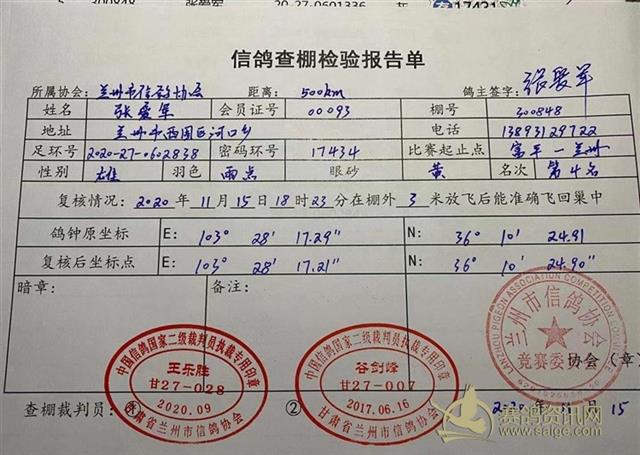 300848 20-27-0601336 17421
信鸽查棚检验报告单
所属协会: 兰州市信鸽协会 距离: 500km 鸽主签字: 张爱军
姓名 张爱军 会员证号 00093 棚号 300848
地址 兰州市西固区河口乡 电话 13893129722
足环号 2020-27-0602838 密码环号 17434 比赛起止点 富平—兰州
性别 雄 羽色 雨点 眼砂 黄 名次 第4名
复核情况: 2020 年 11 月 15 日 18 时 23 分在棚外 3 米放飞后能准确飞回巢中
鸽钟原坐标 E: 103° 28' 17.29" N: 36° 10' 24.91
复核后坐标点 E: 103° 28' 17.21" N: 36° 10' 24.90"
暗章: 备注:
中国信鸽国家二级裁判员执裁专用印章
王乐胜
甘27-028
2020.09
甘肃省兰州市信鸽协会
中国信鸽国家二级裁判员执裁专用印章
谷剑峰
甘27-007
2017.06.16
甘肃省兰州市信鸽协会
LANZHOU PIGEON ASSOCIATION COMPETITION COMMITTEE
兰州市信鸽协会
竞赛委
协会(章)
查棚裁判员: ②
2020 年 11 月 15
赛鸽资讯网
www.saige.com